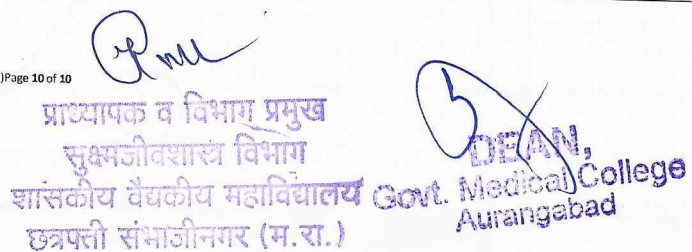 )Page 10 of 10
प्राध्यापक व विभाग प्रमुख
सुक्ष्मजीवशास्त्र विभाग
शासकीय वैद्यकीय महाविद्यालय
छत्रपती संभाजीनगर (म.रा.)
DEAN,
Govt. Medical College
Aurangabad